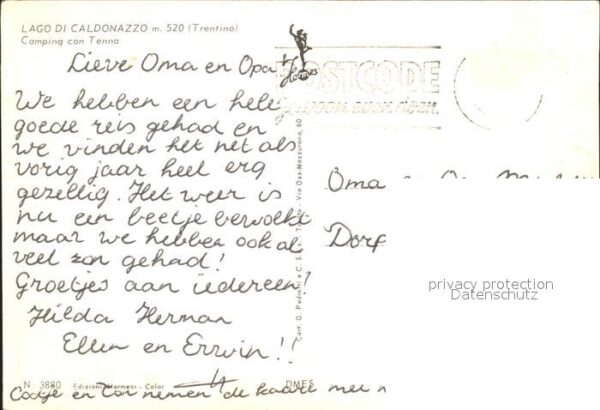 LAGO DI CALDONAZZO m. 520 (Trentino)
Camping con Tenna
Lieve Oma en Opa
We hebben een hele
goede reis gehad en
we vinden het net als
vorig jaar heel erg
gezellig. Het weer is
nu een beetje bewolkt
maar we hebben ook al
veel zon gehad!
Groetjes aan iedereen!
Hilda Herman
Ellen en Erwin!!
N. 3880 Edizioni "Hermes" - Color DMES
en nemen de kaart mee
POSTCODE
gewoon even doen.
Oma
Dorp
Cart. G. Via Oss-Mazzurana, 60
privacy protection
Datenschutz